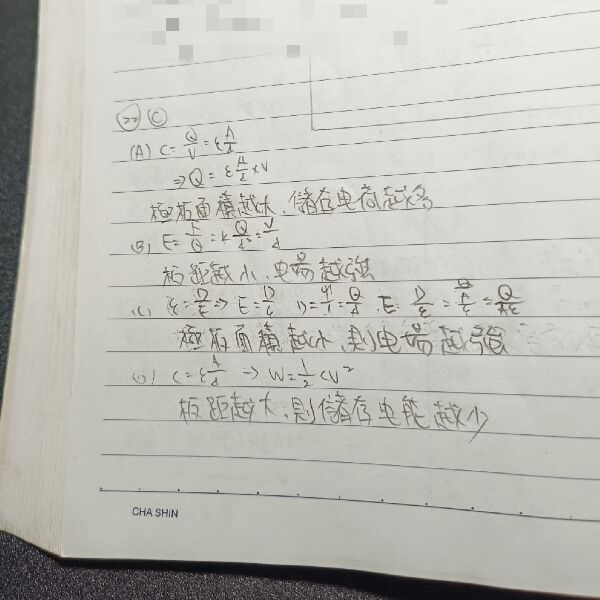 22 C
(A) C = Q/V = ε A/d
⇒ Q = ε A/d × V
極板面積越大,儲存电荷越多
(B) E = F/Q = k Q/d² = V/d
板距越小,电場越強
(C) ε = D/E ⇒ E = D/ε D = ψ/A = Q/A E = D/ε = Q/A/ε = Q/Aε
極板面積越小,則电場越強
(D) C = ε A/d → W = 1/2 CV²
板距越大,則儲存电能越少
CHA SHIN